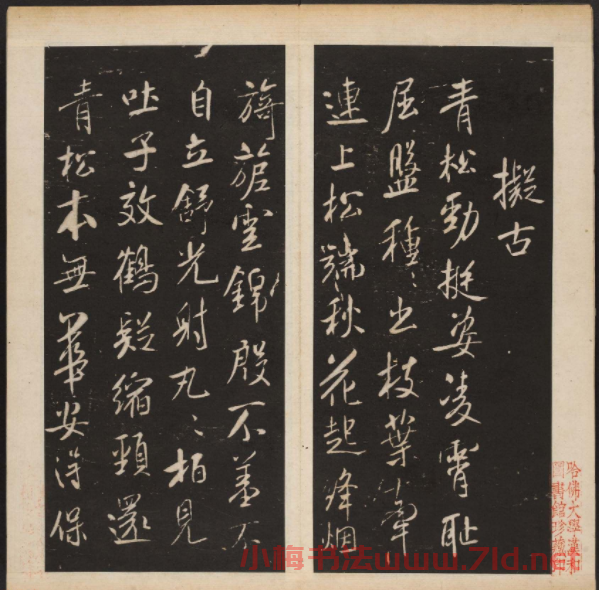 擬古
青松勁挺姿凌霄恥
屈盤種〻出枝葉牽
連上松端秋花起絳烟
旖旎雲錦殷不羞不
自立舒光射丸〻柏見
吐子效鶴疑縮頸還
青松本無華安得保
哈佛大學漢和
圖書館珍藏印
小梅书法www.7ld.net